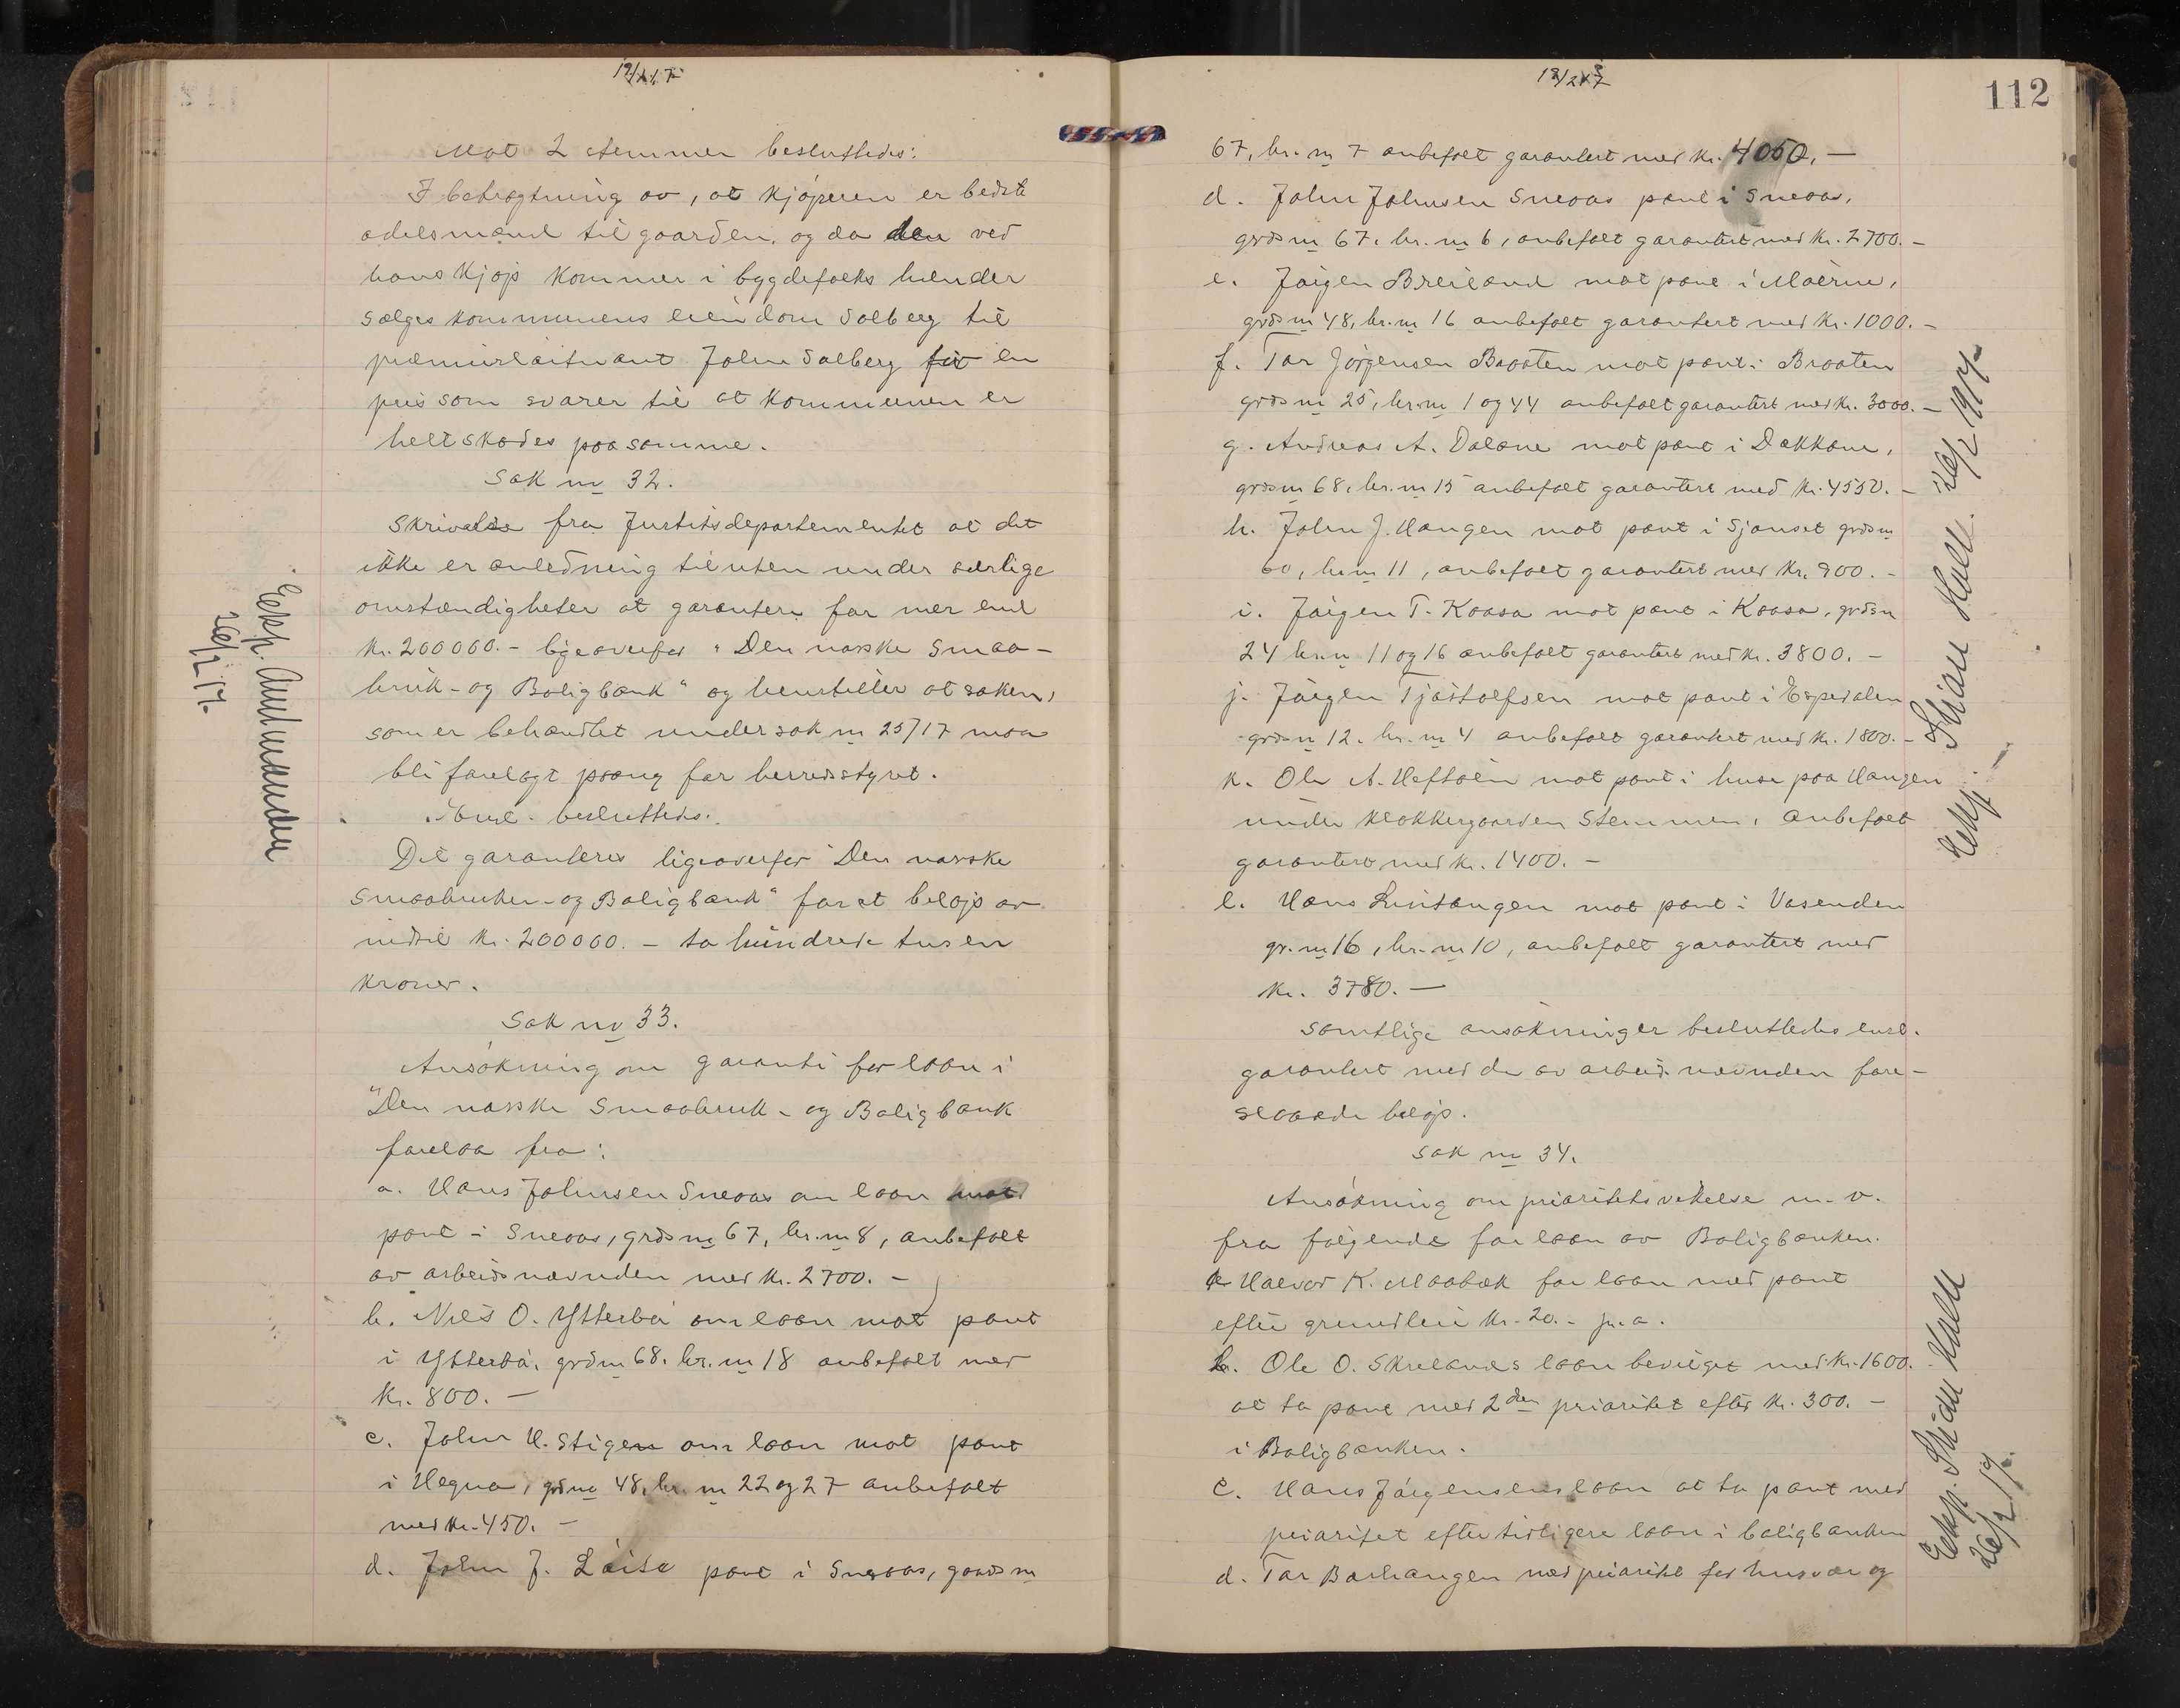 Mot 2 stemmer besluttedes:
I betragtning av, at kjøperen er bedste
odelsmand til gaarden, og da den ved
hans kjøp kommer i bygdefolks hænder
sælges kommunens eiendom Solberg til
premierløitnant John Solberg for en
pris som svarer til at kommunen er
helt skades paa samme.
Sak nr 32.
Skrivelse fra Justitsdepartementet at det
ikke er anledning til uten under særlige
omstændigheter at garantere for mer end
kr. 200000.- ligeoverfor "Den norske Smaa-
bruk- og Boligbank" og henstiller at saken,
som er behandlet under sak nr 25/17 maa
bli forelagt paany for herredsstyret.
Enst. besluttedes:
Det garanteres ligeoverfor "Den norske
Smaabruker- og Boligbank" for et beløp av
indtil kr. 200000. - to hundrede tusen
kroner.
Sak nr 33.
Ansøkning om garanti for laan i
"Den norske Smaabruk- og Boligbank
forelaa fra:
a. Hans Johnsen Sneaas om laan mot
pant i Sneaas, grds nr 67, br. nr 8, anbefalt
av arbeidsnævnden med kr. 2700. -
b. Nils O. Ytterbø om laan mot pant
i Ytterbø, grds nr 68. br. nr 18 anbefalt med
kr. 800. -
c. John H. Stigen om laan mot pant
i Hegna, grds nr 48, br. nr 22 og 27 anbefalt
med kr. 450. -
d. John J. pant i Sneaas, gaards nr
Eksp. Amtmanden
26/2 17.
112
67, br. nr 7 anbefalt garantert med kr. 4050. -
d. John Johnsen Sneaas pant i Sneaas,
grds nr 67. br. nr 6, anbefalt garantert med kr. 2700. -
e. Jørgen Breiland mot pant i
grds nr 48, br. nr 16 anbefalt garantert med kr. 1000. -
f. Tor Jørgensen Braaten mot pant i Braaten
grds nr 25, br. nr 1 og 44 anbefalt garantert med kr. 3000. -
g. Andreas A. Dalane mot pant i Dakkane,
grds nr 68, br. nr 15 anbefalt garantert med kr. 4550. -
h. John J. Haugen mot pant i Sjauset grds nr
60, br. nr 11, anbefalt garantert med kr. 900. -
i. Jørgen T. Kaasa mot pant i Kaasa, grds nr
24 br. nr 11 og 16 anbefalt garantert med kr. 3800. -
j. Jørgen Tjøstolfsen mot pant i Espedalen
grds nr 12. br. nr 4 anbefalt garantert med kr. 1800. -
k. Ole A. Heftøen mot pant i huse paa Haugen
under Klokkergaarden Stemmen, anbefalt
garantert med kr. 1400. -
l. Hans mot pant i Vasenden
gr. nr 16, br. nr 10, anbefalt garantert med
kr. 3780. -
Samtlige ansøkninger besluttedes enst.
garantert med de av arbeidsnævnden fore-
slaaede beløp.
Sak nr 34.
Ansøkning om prioritetsvikelse m. v.
fra følgende for laan av Boligbanken.
a. Halvor K. Maabæk for laan med pant
efter grundleie kr. 20. - pr. a.
b. Ole O. Skrelands laan bevilget med kr. 1600.
at ta pant med 2den prioritet efter kr. 300. -
i Boligbanken.
c. Hans Jørgensens laan at ta pant med
prioritet efter tidligere laan i boligbanken
d. Tor Barhaugen med prioritet for husvær og
Eksp. Skien 26/2 1917.
Eksp. Skien
26/2 17.